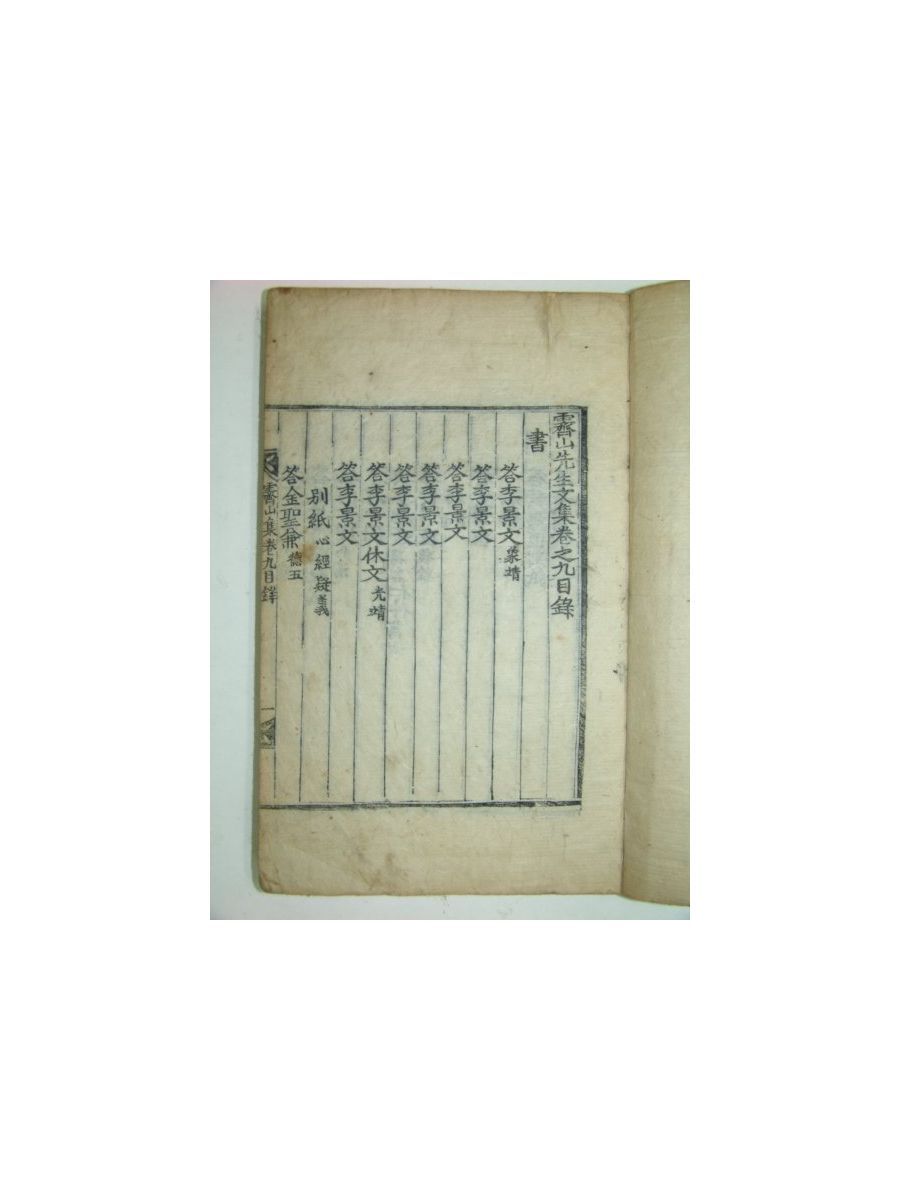 霽山先生文集卷之九目錄
書
答李景文 象靖
答李景文
答李景文
答李景文
答李景文
答李景文休文 光靖
答李景文
別紙 心經疑義
答金聖兼 德五
霽山集卷九目錄 一